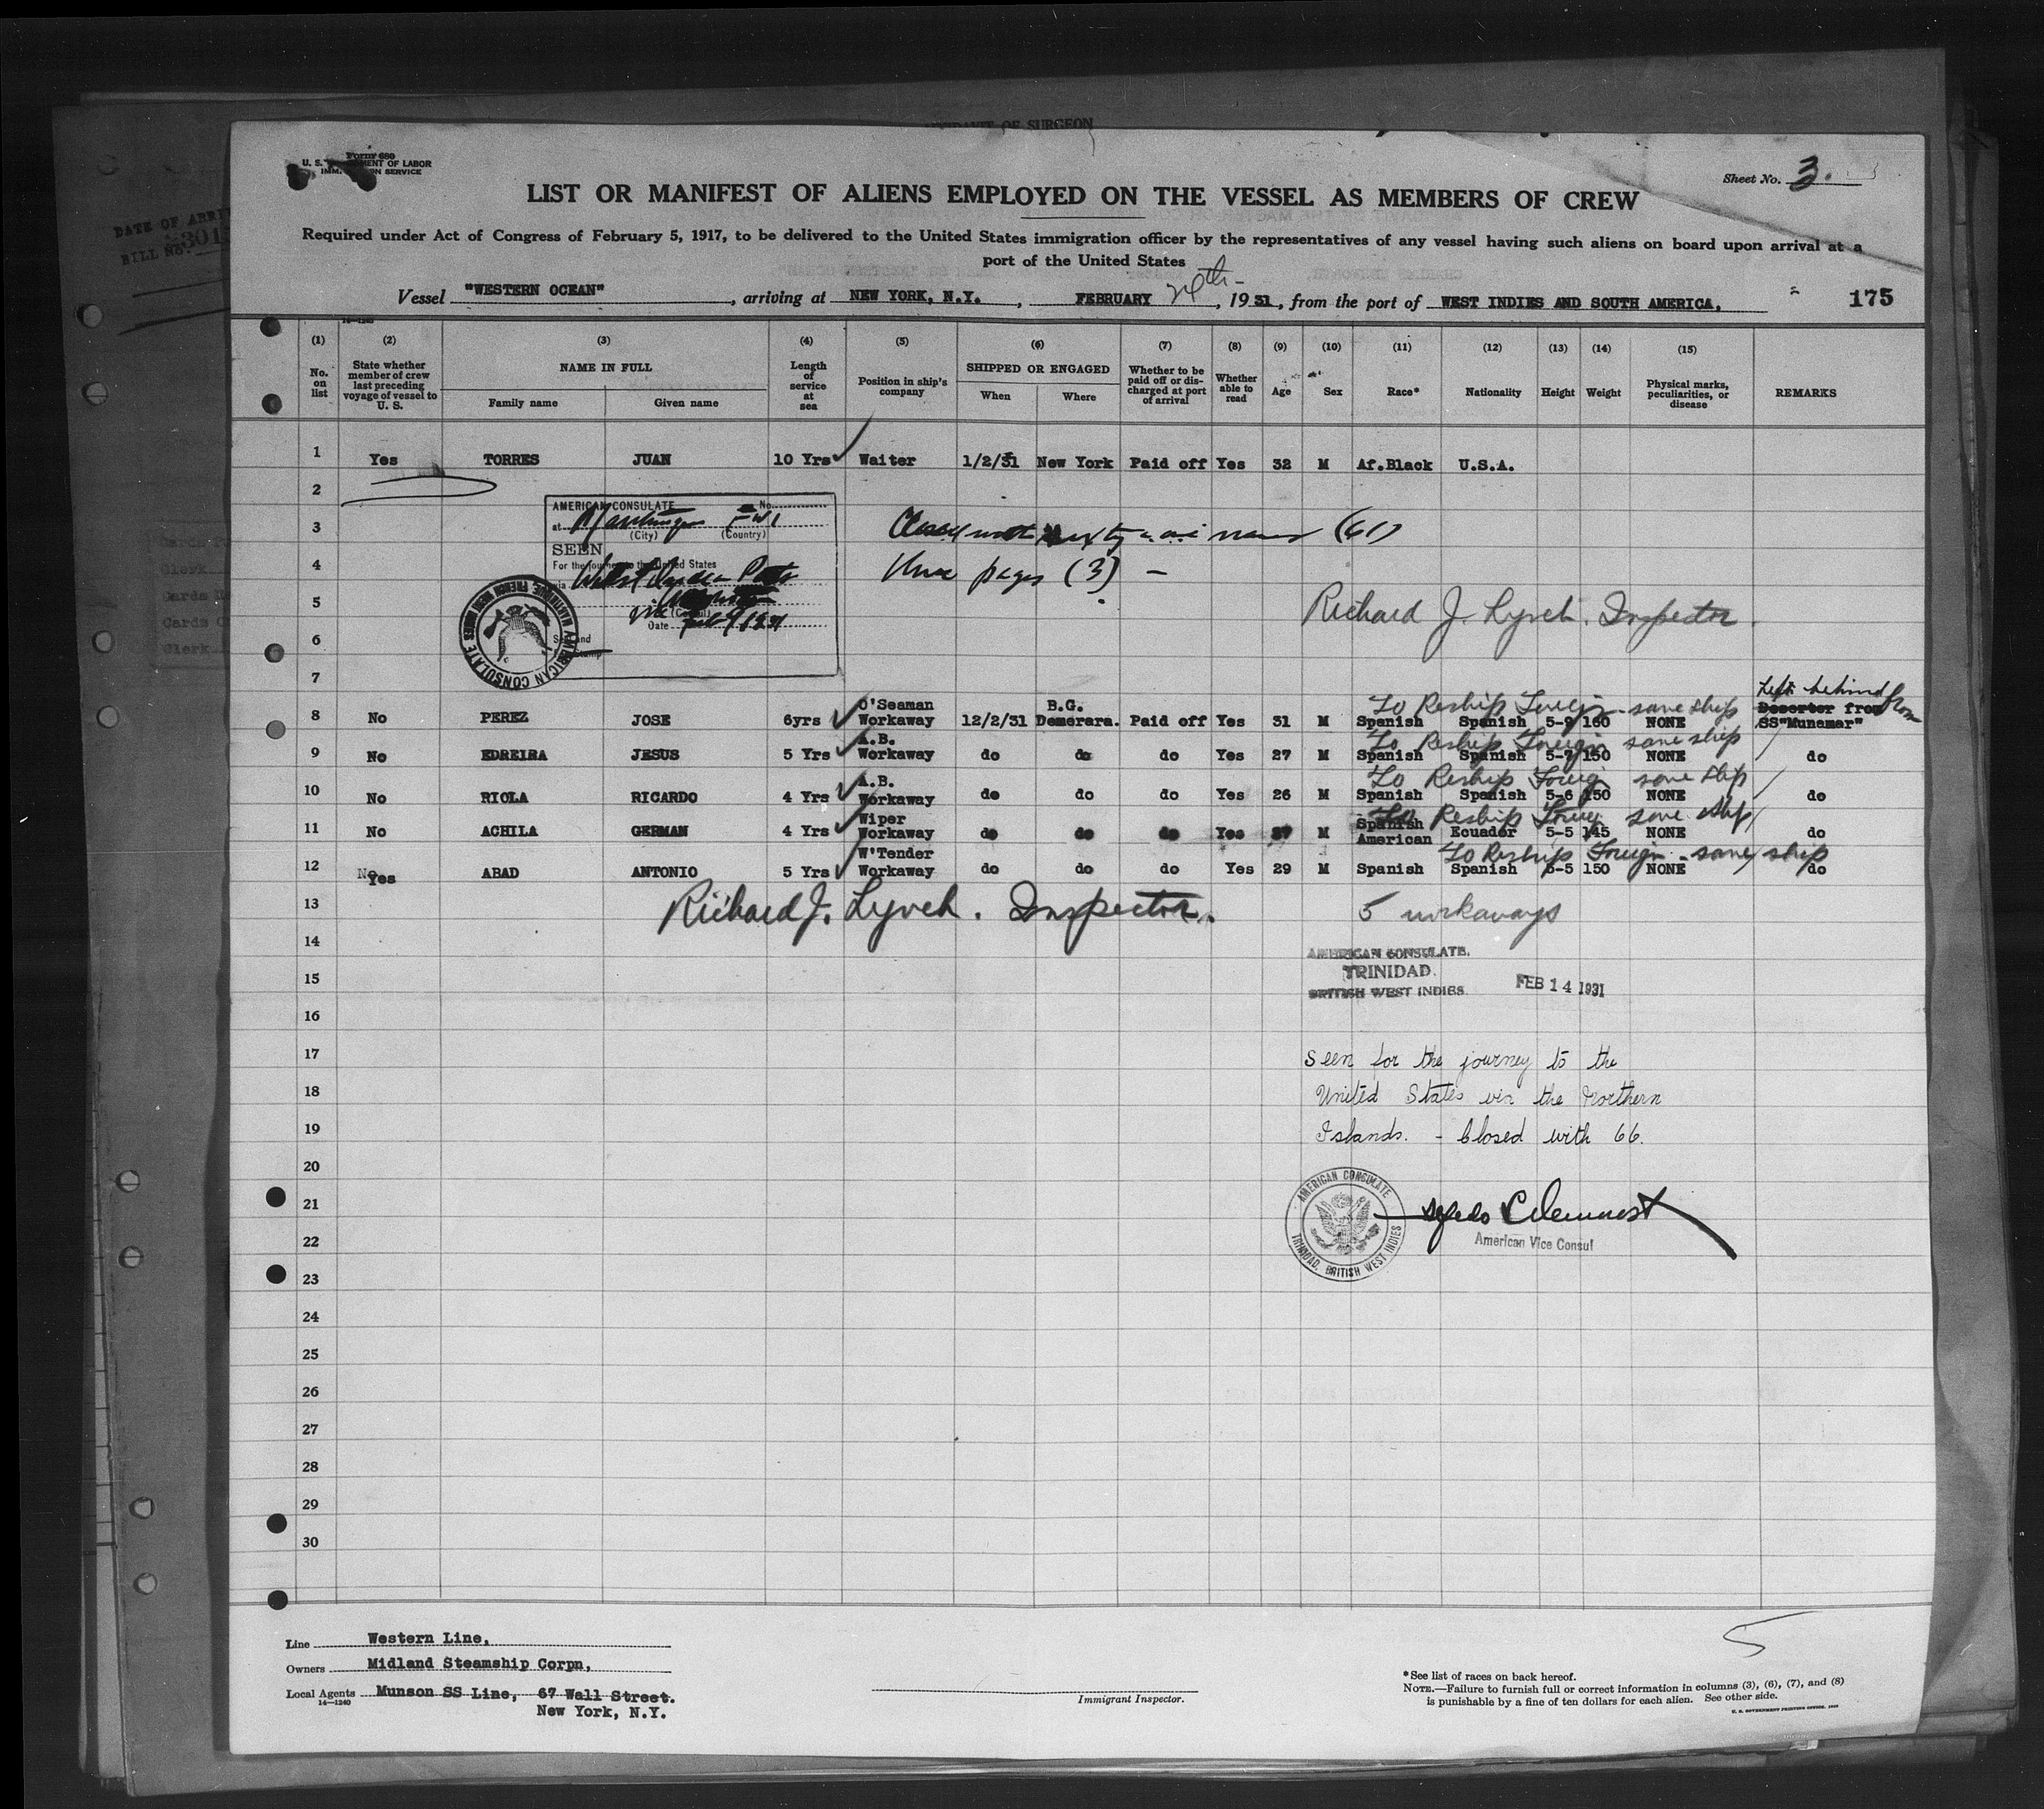 AFFIDAVIT OF SURGEON
DATE OF ARRI
BILL No.
Form 680
U. S. DEPARTMENT OF LABOR
IMMIGRATION SERVICE
Sheet No. 3.
LIST OR MANIFEST OF ALIENS EMPLOYED ON THE VESSEL AS MEMBERS OF CREW
Required under Act of Congress of February 5, 1917, to be delivered to the United States immigration officer by the representatives of any vessel having such aliens on board upon arrival at a
port of the United States
Vessel "WESTERN OCEAN", arriving at NEW YORK, N.Y., FEBRUARY 24th, 1931, from the port of WEST INDIES AND SOUTH AMERICA, 175
14-1240
(1) (2) (3) (4) (5) (6) (7) (8) (9) (10) (11) (12) (13) (14) (15)
No. on list
State whether member of crew last preceding voyage of vessel to U. S.
NAME IN FULL
Family name Given name
Length of service at sea
Position in ship's company
SHIPPED OR ENGAGED
When Where
Whether to be paid off or discharged at port of arrival
Whether able to read
Age Sex Race* Nationality Height Weight
Physical marks, peculiarities, or disease
REMARKS
1 Yes TORRES JUAN 10 Yrs Waiter 1/2/31 New York Paid off Yes 32 M Af.Black U.S.A.
2
AMERICAN CONSULATE No.
3 at Martinique F W I
(City) (Country)
Closed with sixty-one names (61)
SEEN
4 For the journey to the United States
three pages (3) —
via West Indian Ports
5
Richard J. Lynch. Inspector.
Date Feb 9 1931
6
AMERICAN CONSULATE MARTINIQUE FRENCH WEST INDIES
7
Left behind from
To Reship Foreign - same ship
8 No PEREZ JOSE 6yrs O'Seaman Workaway 12/2/31 B.G. Demerara. Paid off Yes 31 M Spanish Spanish 5-9 160 NONE Deserter from SS"Munamar"
To Reship Foreign same ship
9 No EDREIRA JESUS 5 Yrs A.B. Workaway do do do Yes 27 M Spanish Spanish 5-7 150 NONE do
To Reship Foreign same ship
10 No RIOLA RICARDO 4 Yrs A.B. Workaway do do do Yes 26 M Spanish Spanish 5-6 150 NONE do
To Reship Foreign same ship
11 No ACHILA GERMAN 4 Yrs Wiper Workaway do do do Yes 37 M Spanish American Ecuador 5-5 145 NONE do
To Reship Foreign - same ship
12 No Yes ABAD ANTONIO 5 Yrs W'Tender Workaway do do do Yes 29 M Spanish Spanish 5-5 150 NONE do
13 Richard J. Lynch. Inspector. 5 workaways
14 AMERICAN CONSULATE.
15 TRINIDAD. FEB 14 1931
BRITISH WEST INDIES
16
17 Seen for the journey to the
18 United States via the Northern
19 Islands. - Closed with 66.
20
21 AMERICAN CONSULATE TRINIDAD, BRITISH WEST INDIES
22 American Vice Consul
23
24
25
26
27
28
29
30
Line Western Line,
Owners Midland Steamship Corpn,
Local Agents Munson SS Line, 67 Wall Street.
14—1240 New York, N.Y.
Immigrant Inspector.
5
*See list of races on back hereof.
NOTE.—Failure to furnish full or correct information in columns (3), (6), (7), and (8)
is punishable by a fine of ten dollars for each alien. See other side.
U. S. GOVERNMENT PRINTING OFFICE